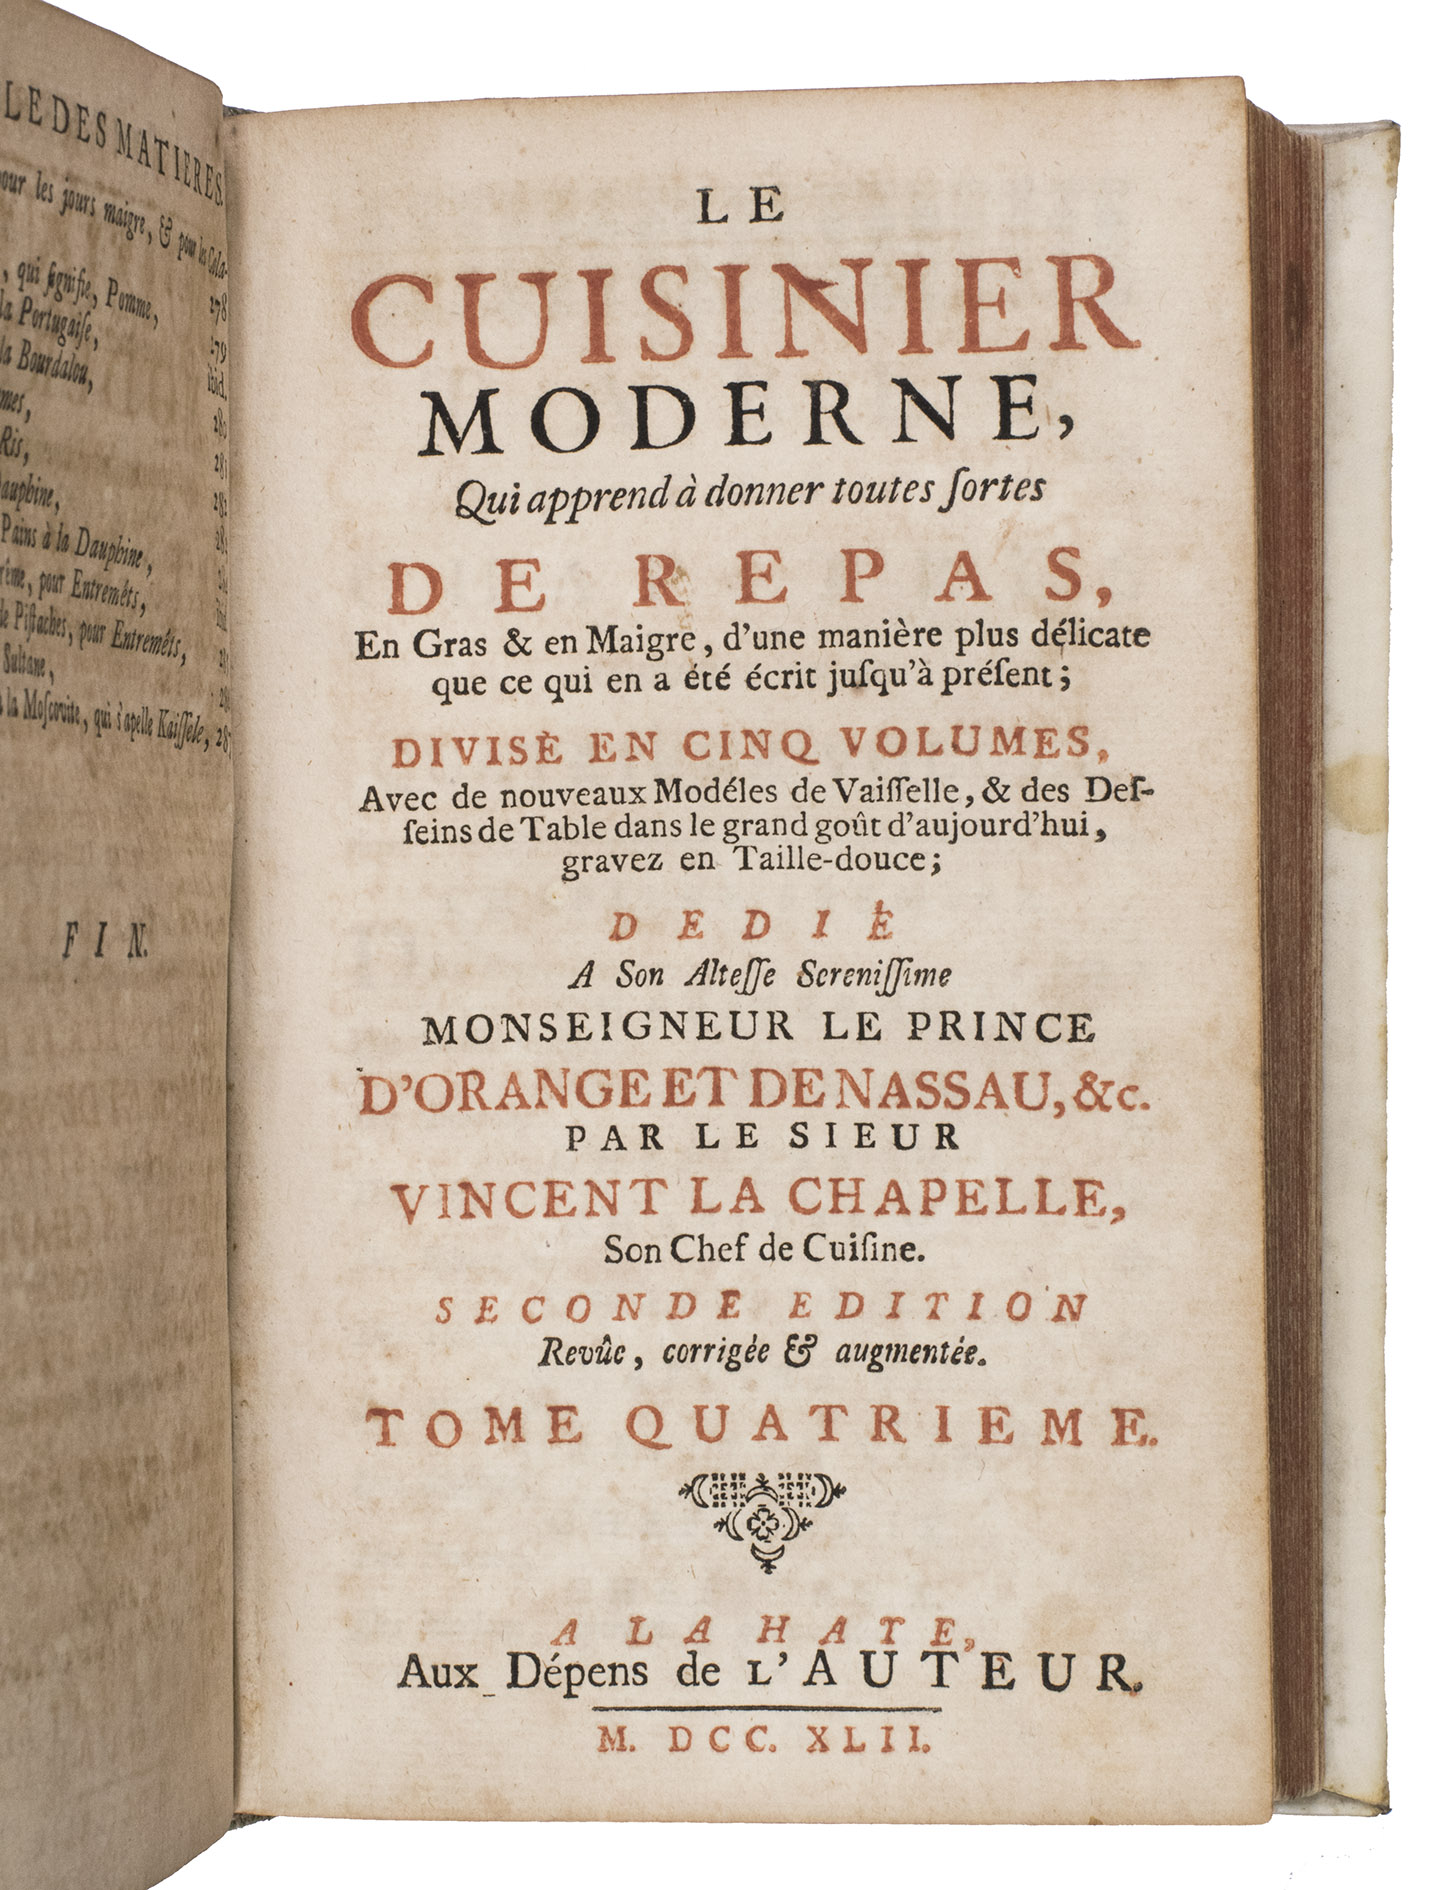 LE DES MATIERES.
pour les jours maigre, & pour les Cola-
, qui signifie, Pomme, 278
la Portugaiſe, 279
la Bourdalou, ibid.
Ris,
Dauphine,
Pains à la Dauphine,
pour Entremêts,
de Piſtaches, pour Entremêts,
Sultane,
à la Moſcovite, qui s'apelle Kaiſſele,
FIN.
LE
CUISINIER
MODERNE,
Qui apprend à donner toutes ſortes
DE REPAS,
En Gras & en Maigre, d'une manière plus délicate
que ce qui en a été écrit juſqu'à préſent;
DIVISÈ EN CINQ VOLUMES,
Avec de nouveaux Modéles de Vaiſſelle, & des Deſ-
ſeins de Table dans le grand goût d'aujourd'hui,
gravez en Taille-douce;
DEDIÈ
A Son Alteſſe Sereniſſime
MONSEIGNEUR LE PRINCE
D'ORANGE ET DE NASSAU, &c.
PAR LE SIEUR
VINCENT LA CHAPELLE,
Son Chef de Cuiſine.
SECONDE EDITION
Revûe, corrigée & augmentée.
TOME QUATRIEME.
A LA HAYE,
Aux Dépens de L'AUTEUR.
M. DCC. XLII.